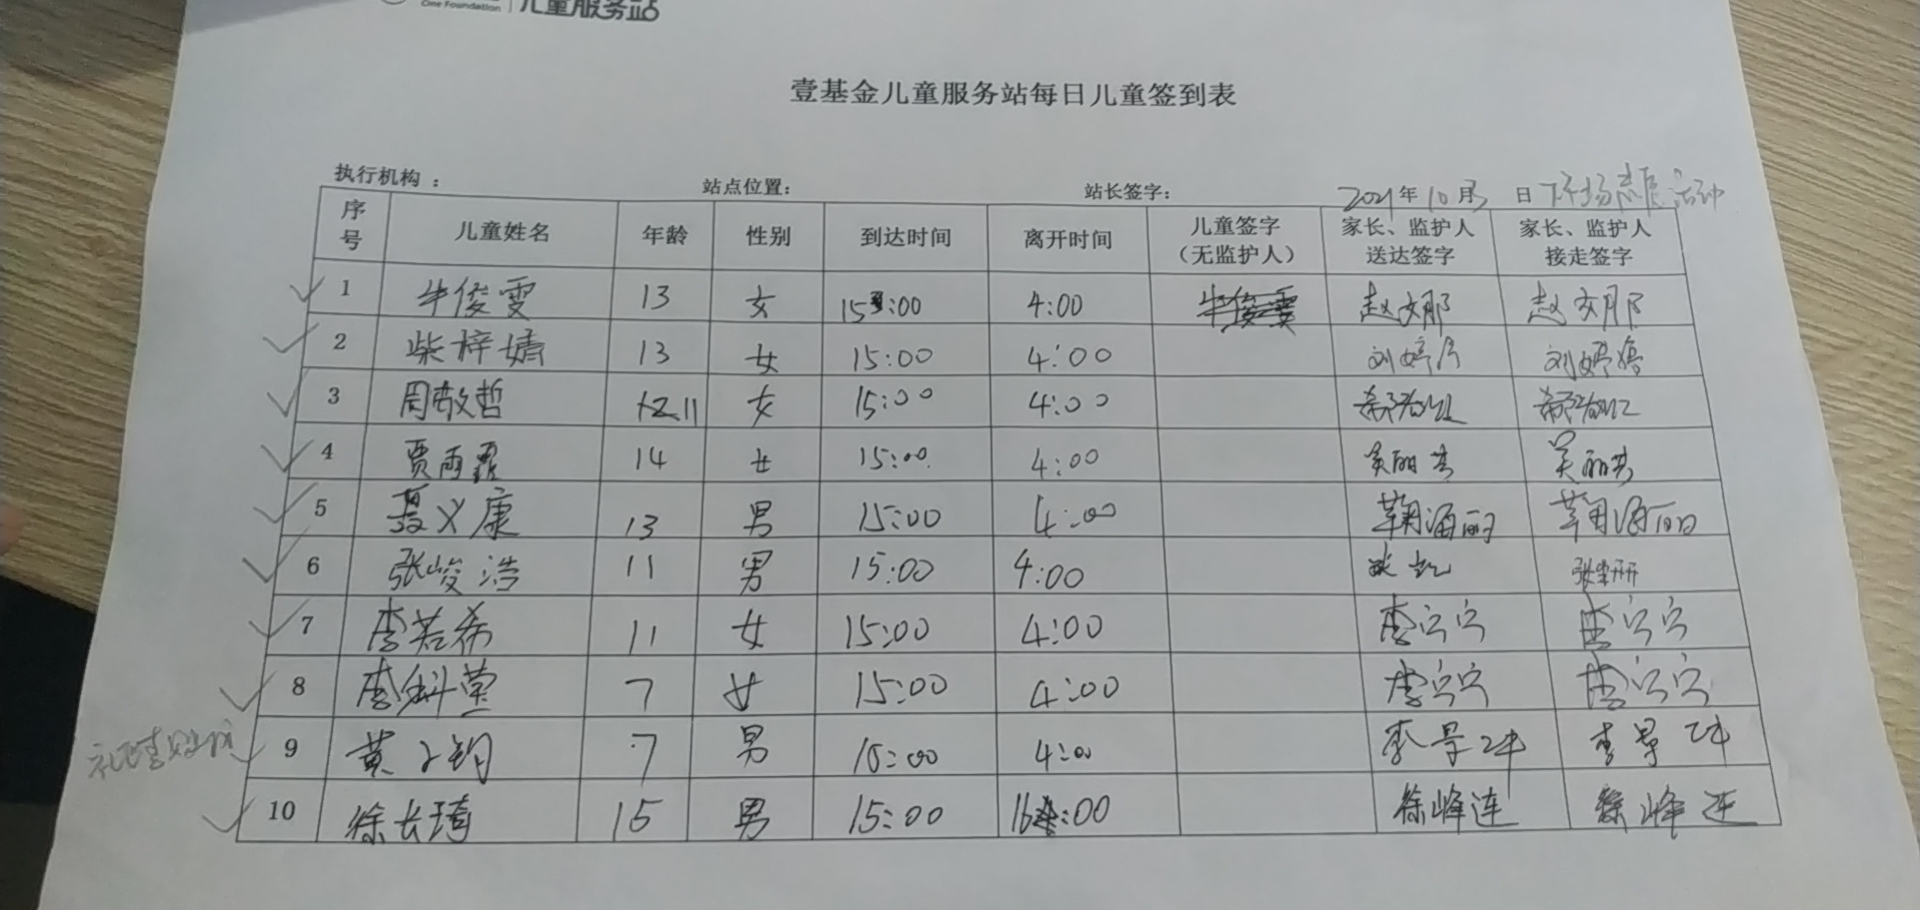 One Foundation 儿童服务站
壹基金儿童服务站每日儿童签到表
执行机构： 站点位置： 站长签字： 2021年10月3日 活动
序号 儿童姓名 年龄 性别 到达时间 离开时间 儿童签字（无监护人） 家长、监护人送达签字 家长、监护人接走签字
1 牛俊雯 13 女 15:00 4:00 牛俊雯 赵文那 赵文那
2 柴梓婧 13 女 15:00 4:00 刘婷婷 刘婷婷
3 周敬哲 11 女 15:00 4:00
4 贾雨霏 14 女 15:00 4:00 吴丽芳 吴丽芳
5 聂义康 13 男 15:00 4:00
6 张峻浩 11 男 15:00 4:00
7 李若希 11 女 15:00 4:00 李宁宁 李宁宁
8 李科萱 7 女 15:00 4:00 李宁宁 李宁宁
9 黄子钧 7 男 15:00 4:00 李景 李景
10 徐长琦 15 男 15:00 16:00 徐峰连 徐峰连